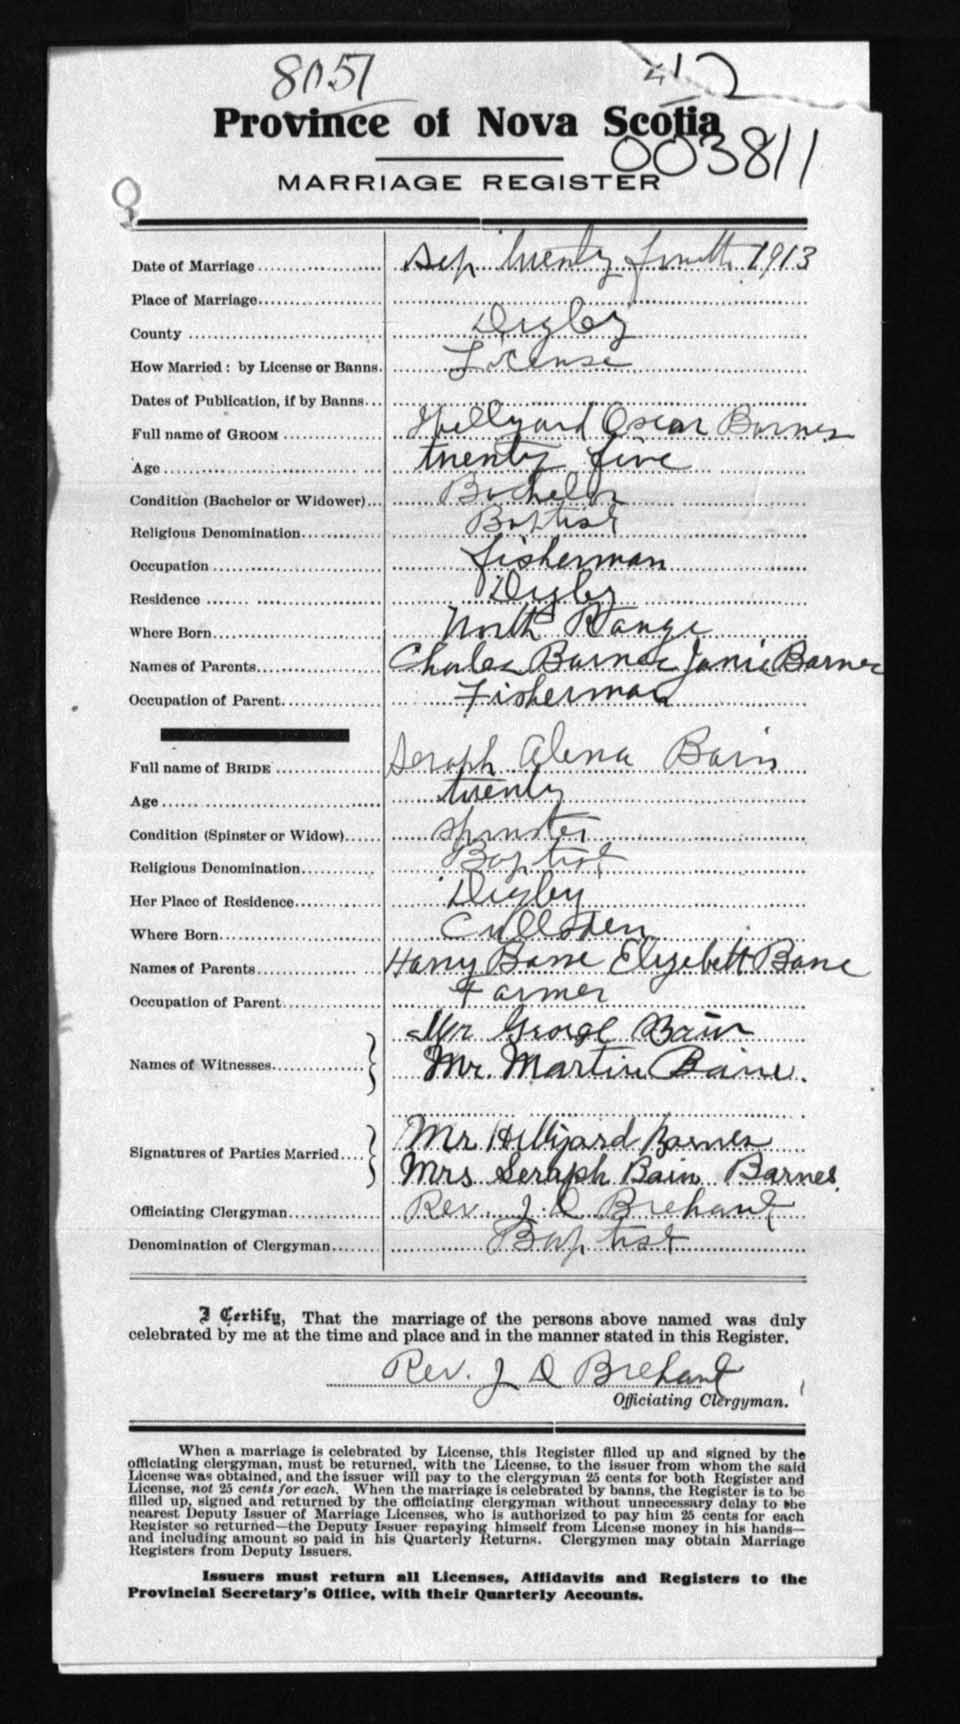 8051
412
Province of Nova Scotia
003811
MARRIAGE REGISTER
Date of Marriage Sep twenty fourth 1913
Place of Marriage
County Digby
How Married: by License or Banns. License
Dates of Publication, if by Banns
Full name of GROOM Hillyard Oscar Barnes
Age twenty five
Condition (Bachelor or Widower) Bachelor
Religious Denomination Baptist
Occupation fisherman
Residence Digby
Where Born North Range
Names of Parents Charles Barnes Janie Barnes
Occupation of Parent Fisherman
Full name of BRIDE Seraph Alena Bain
Age twenty
Condition (Spinster or Widow) Spinster
Religious Denomination Baptist
Her Place of Residence Digby
Where Born Culloden
Names of Parents Harry Bane Elizebett Bane
Occupation of Parent Farmer
Mr George Bain
Names of Witnesses Mr. Martin Baine.
Mr Hillyard Barnes
Signatures of Parties Married Mrs Seraph Bain Barnes
Officiating Clergyman Rev. J D Brehant
Denomination of Clergyman Baptist
I Certify, That the marriage of the persons above named was duly
celebrated by me at the time and place and in the manner stated in this Register.
Rev. J D Brehant
Officiating Clergyman.
When a marriage is celebrated by License, this Register filled up and signed by the
officiating clergyman, must be returned, with the License, to the issuer from whom the said
License was obtained, and the issuer will pay to the clergyman 25 cents for both Register and
License, not 25 cents for each. When the marriage is celebrated by banns, the Register is to be
filled up, signed and returned by the officiating clergyman without unnecessary delay to the
nearest Deputy Issuer of Marriage Licenses, who is authorized to pay him 25 cents for each
Register so returned—the Deputy Issuer repaying himself from License money in his hands—
and including amount so paid in his Quarterly Returns. Clergymen may obtain Marriage
Registers from Deputy Issuers.
Issuers must return all Licenses, Affidavits and Registers to the
Provincial Secretary's Office, with their Quarterly Accounts.